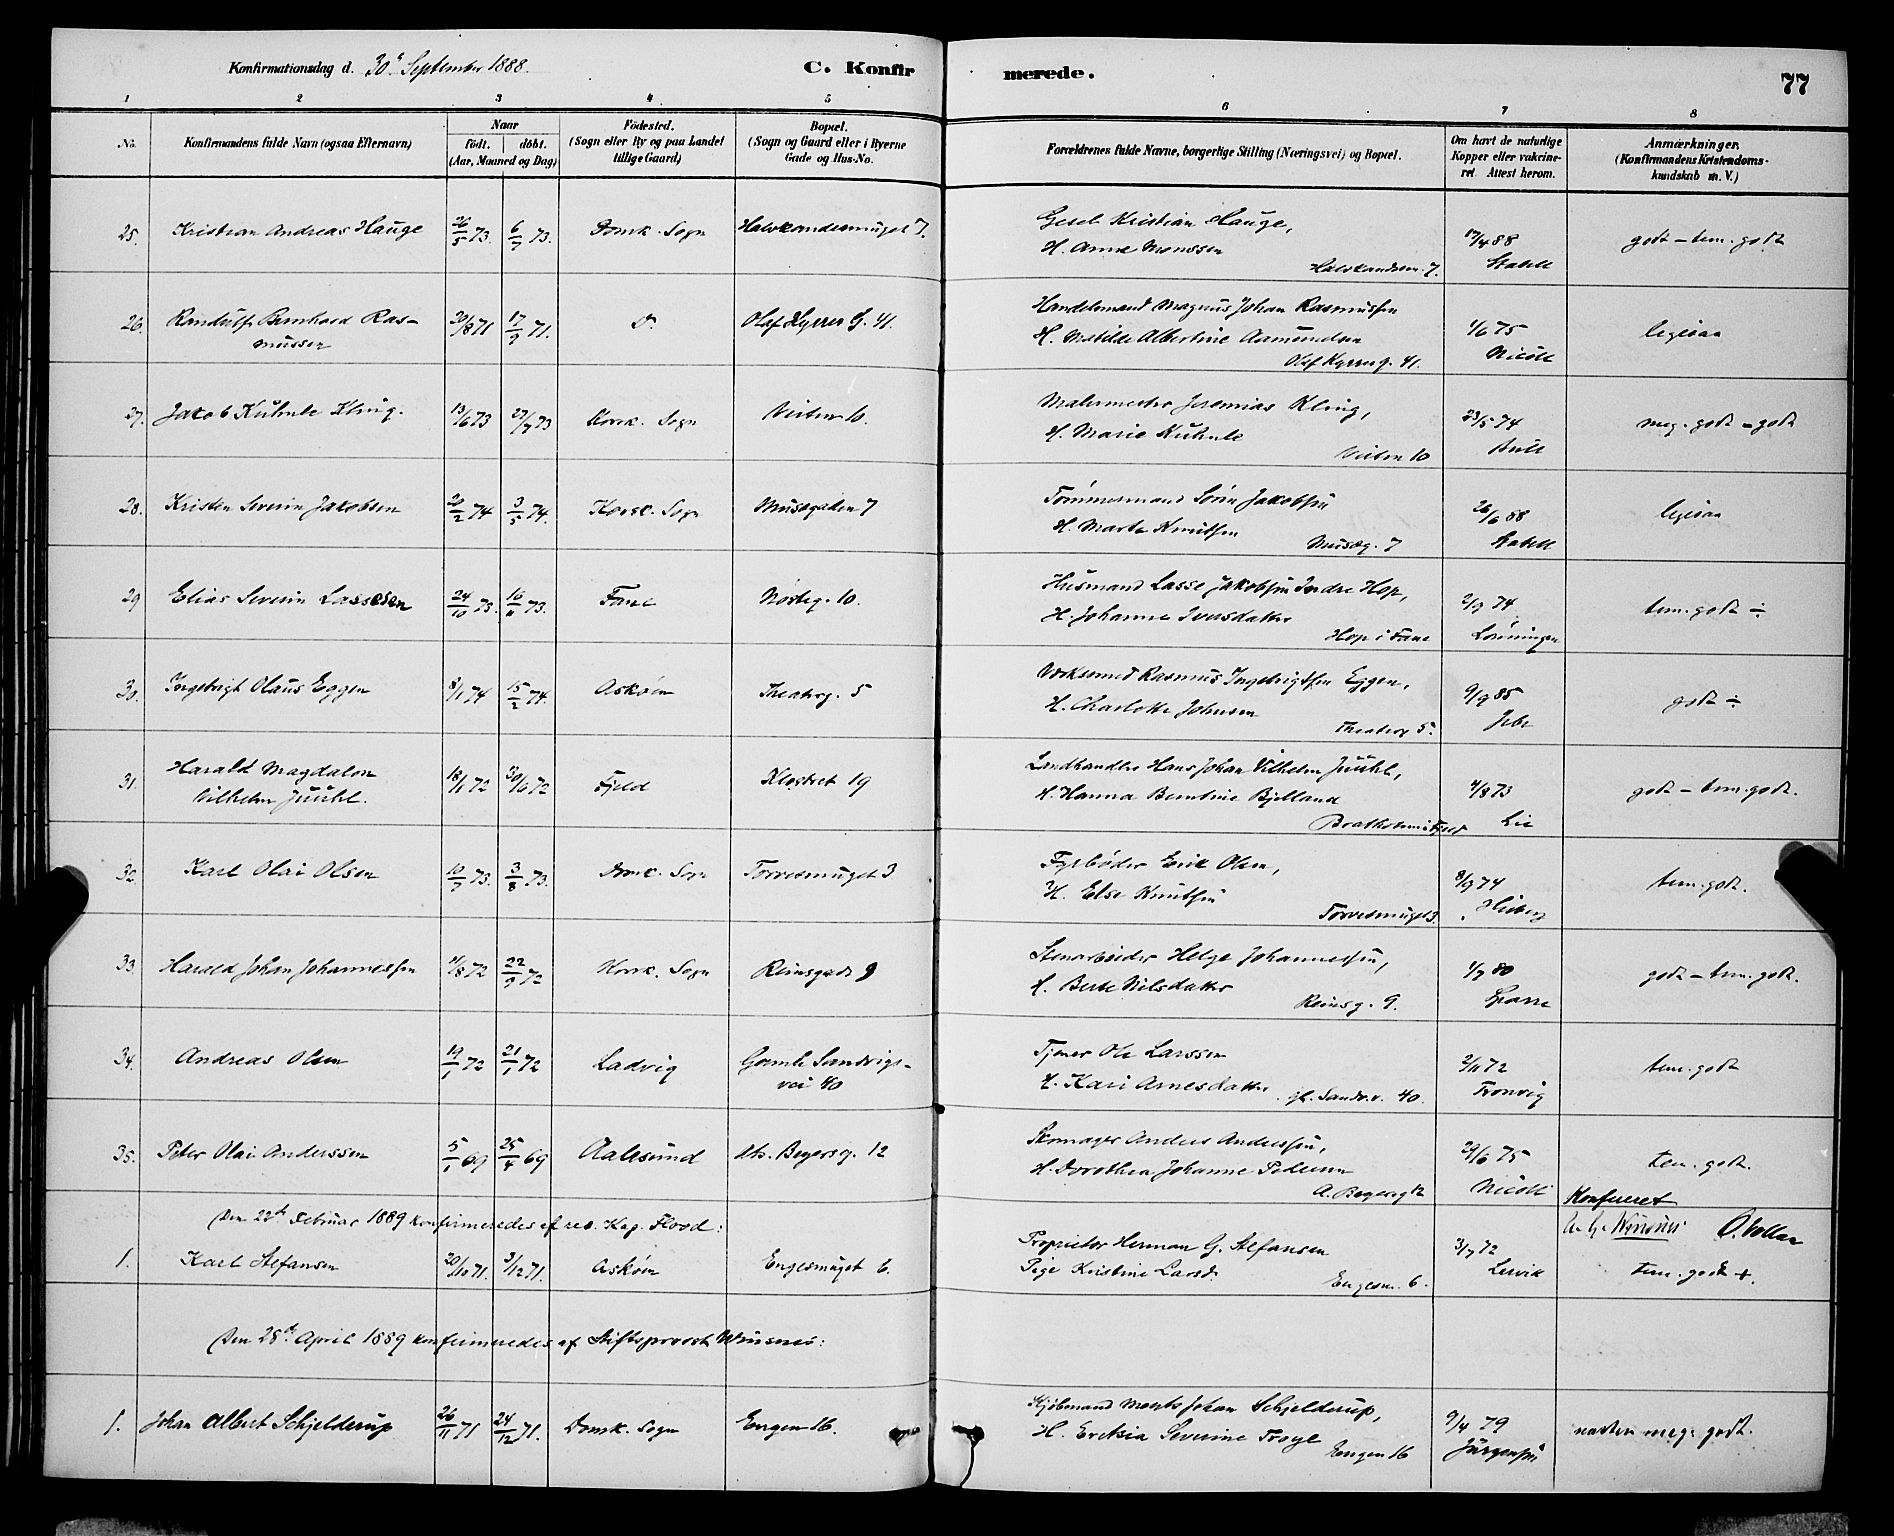 Konfirmationsdag d. 30' September 1888.
C. Konfirmerede.
77
1 2 3 4 5 6 7 8
No.
Konfirmandens fulde Navn (ogsaa Efternavn)
Naar
födt. döbt.
(Aar, Maaned og Dag)
Födested.
(Sogn eller By og paa Landet
tillige Gaard)
Bopæl.
(Sogn og Gaard eller i Byerne
Gade og Hus-No.
Forældrenes fulde Navne, borgerlige Stilling (Næringsvei) og Bopæl.
Om havt de naturlige
Kopper eller vakcine-
ret Attest herom.
Anmærkninger.
(Konfirmandens Kristendoms-
kundskab m. V.)
25. Kristian Andreas Hauge 26/5 73. 6/7 73. Domk. Sogn Halvkandesmuget 7.
Gesel Kristian Hauge,
H. Anna Monssen
Halvkandesm. 7.
17/4 88
Stabell
godt - tem. godt
26. Randulf Bernhard Ras-
mussen
30/8 71 17/9 71. Do Olaf Kyrres G. 41.
Handelsmand Magnus Johan Rasmussen
H. Matilde Albertine Aamundsen
Olaf Kyrresg. 41.
1/6 75
Nicoll
ligesaa
27. Jakob Kuhnle Kling. 13/6 73 27/7 73 Korsk. Sogn Veiten 10.
Malermester Jeremias Kling,
H. Marie Kuhnle
Veiten 10
23/5 74
Bull
meg. godt - godt
28. Kristen Severin Jakobsen 20/2 74 3/5 74. Korsk. Sogn Musægaden 7
Tømmermand Sørin Jakobsen
H. Marta Knutsen
Musæg. 7
26/6 88
Stabell
ligesaa
29 Elias Severin Lassesen 24/10 73. 16/11 73. Fane Nøsteg. 10.
Husmand Lasse Jakobsen Indre Hop,
H. Johanne Iversdatter
Hop i Fane
2/9 74
Lønningen
tem. godt ÷
30. Ingebrigt Olaus Eggen 8/1 74 15/2 74. Askøen Theaterg. 5
Rasmus Ingebrigtsen Eggen,
H. Charlotte Johnsen
Theaterg 5.
9/9 85
godt ÷
31. Harald Magdalon
Vilhelm Juuhl.
18/1 72 30/6 72 Fjeld Klostret 19
Landhandler Hans Johan Vilhelm Juuhl,
H. Hanna Berntine Bjelland
Bratholmen i Fjeld
4/8 73
Lie
godt - tem. godt.
32. Karl Olai Olsen 10/7 73. 3/8 73. Domk. Sogn Torvesmuget 3
Fyrbøder Erik Olsen,
H. Else Knutsen
Torvesmuget 3.
8/9 74
tem. godt.
33. Harald Johan Johannessen 11/8 72 22/9 72 Korsk. Sogn Reinsgade 9
Stenarbeider Helge Johannessen,
H. Berte Nilsdatter
Reinsg. 9.
1/7 80
Sparre
godt - tem. godt.
34. Andreas Olsen 19/1 72 21/1 72 Ladvig Gamle Sandvigs-
vei 40
Tjener Ole Larssen
H. Kari Arnesdatter
gl. Sandv.v. 40.
2/11 72
Tronvig
tem. godt
35. Peter Olai Anderssen 5/1 69 25/4 69 Aalesund Abs. Beyersg. 12
Skomager Anders Anderssen,
H. Dorothea Johanne Pedersen
A. Beyersg 12
29/6 75
Nicoll
tem. godt.
Den 22de Februar 1889 konfirmeredes af res. Kap. Flood:
Konfereret
1. Karl Stefansen 20/10 71. 3/12 71. Askøen Engesmuget 6.
Proprietær Herman G. Stefansen
Pige Kristine Larsd.
Engesm. 6.
3/7 72
Lervik
tem. godt +.
Den 28de April 1889 konfirmeredes af Stiftsprovst Winsnes:
1. Johan Albert Schjelderup 26/11 71 24/12 71. Domk. Sogn Engen 16.
Kjøbmand Johan Schjelderup,
H. Ericksia Severine Troye
Engen 16
9/4 79
Jürgensen
næsten meg. godt.